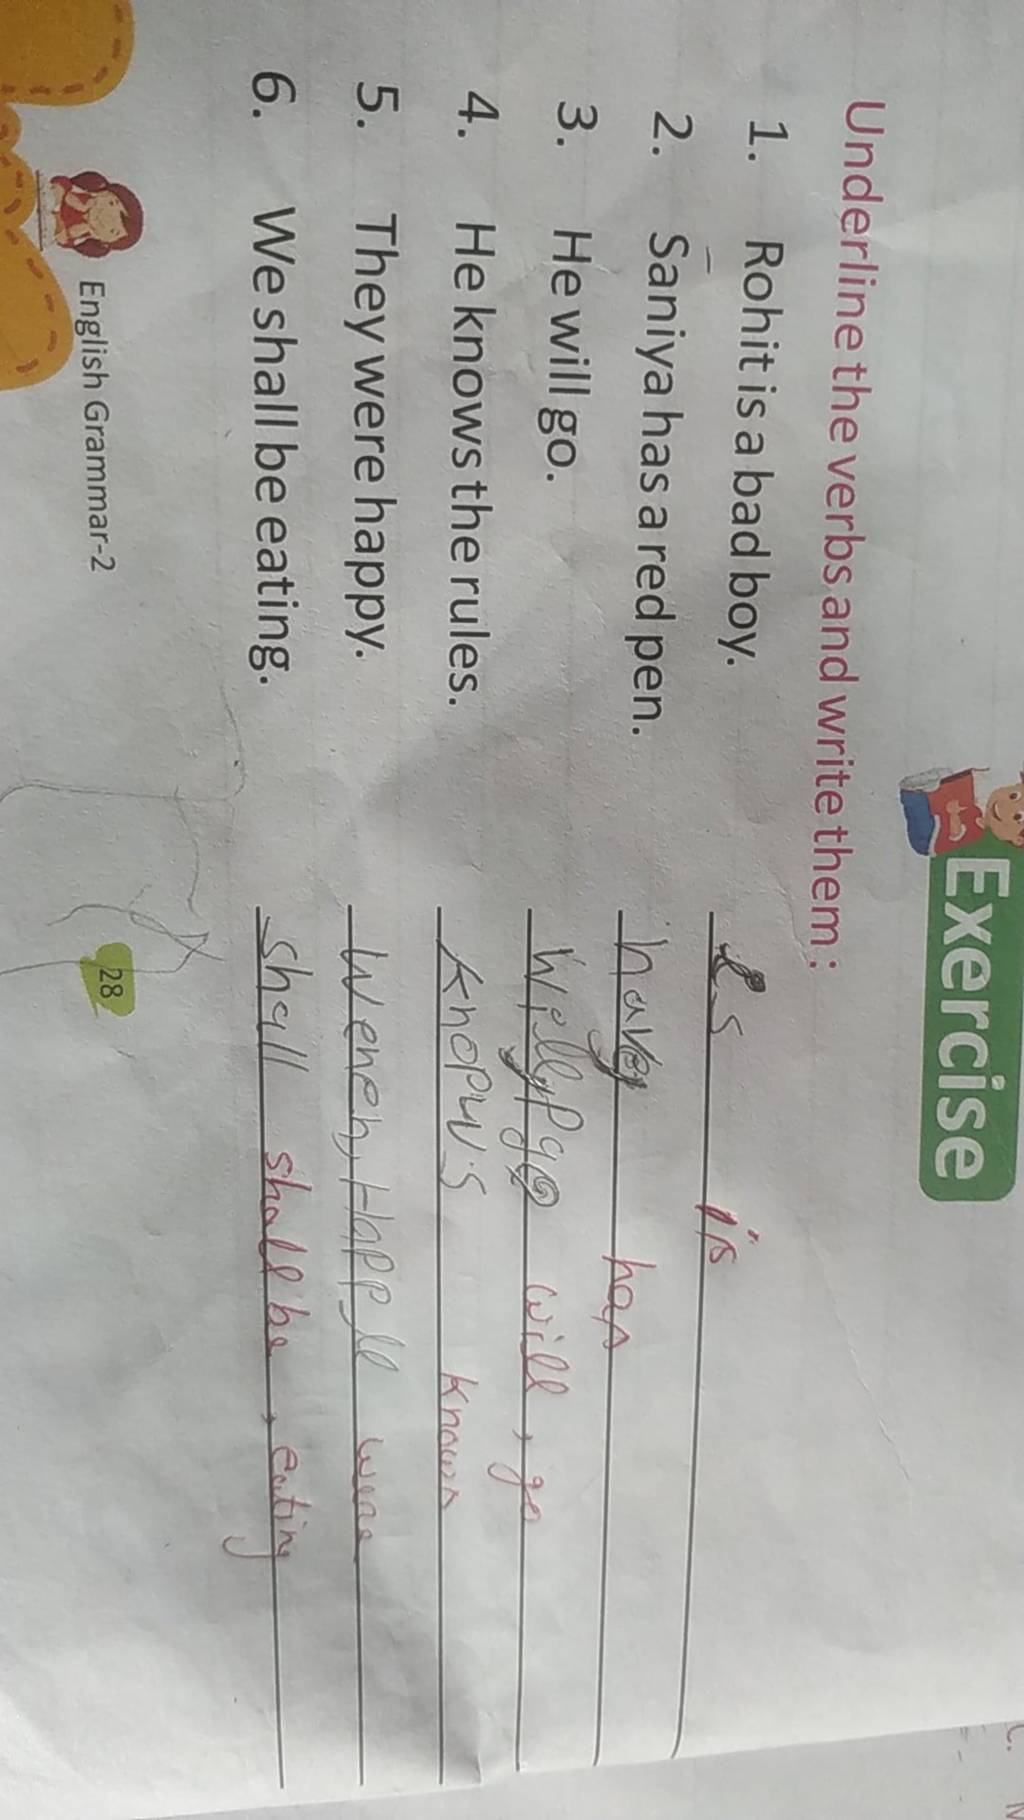 Exercise
Underline the verbs and write them :
1. Rohit is a bad boy. is
2. Saniya has a red pen. has
3. He will go. will, go
4. He knows the rules. knows
5. They were happy. were
6. We shall be eating. shall shall be, eating
English Grammar-2
28